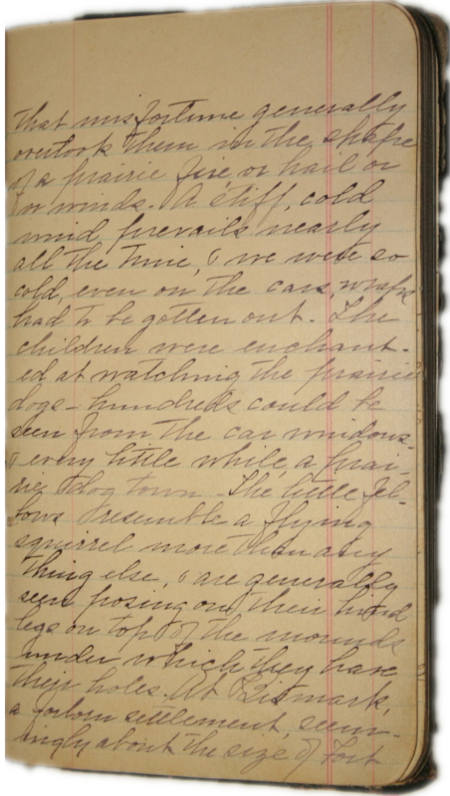 that misfortune generally
overtook them in the shape
of a prairie fire or hail or
or winds. A stiff, cold
wind prevails nearly
all the time, & we were so
cold, even on the cars, wraps
had to be gotten out. The
children were enchant-
ed at watching the prairie
dogs - hundreds could be
seen from the car windows -
& every little while, a prai-
rie dog town. The little fel-
lows resemble a flying
squirrel more than any
thing else, & are generally
seen posing on their hind
legs on top of the mounds
under which they have
their holes. At Bismark,
a forlorn settlement, seem-
ingly about the size of Fort